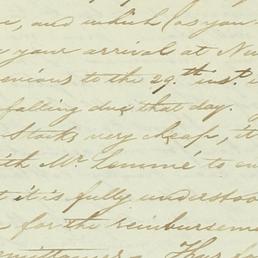 and which (as you
your arrival at
previous to the 29th inst.
falling due that day.
Stocks very cheap, it
with Mr. Lammé to
it is fully understood
for the reimbursement